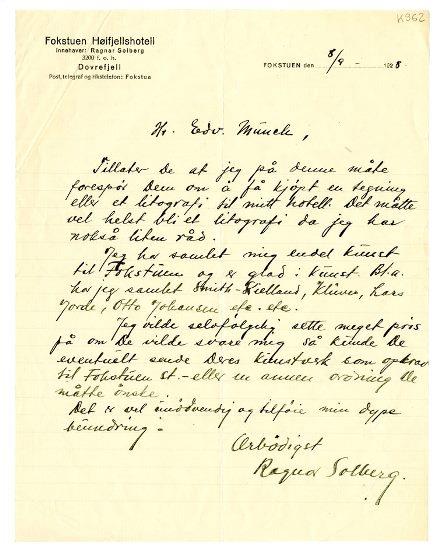 K962
Fokstuen Høifjellshotell
Innehaver: Ragnar Solberg
3200 f. o. h.
Dovrefjell
Post, telegraf og rikstelefon: Fokstua
FOKSTUEN den 8/9 - 1928
Hr. Edv. Munch,
Tillater De at jeg på denne måte
forespør Dem om å få kjøpt en tegning
eller et litografi til mitt hotell. Det måtte
vel helst bli et litografi da jeg har
nokså liten råd.
Jeg har samlet mig endel kunst
til Fokstuen og er glad i kunst. Bl.a.
har jeg samlet Smith-Kielland, Kluver, Lars
Jorde, Otto Johansen etc. etc.
Jeg vilde selvfølgelig sette meget pris
på om De vilde svare mig så kunde De
eventuelt sende Deres kunstverk som opkrav
til Fokstuen st. - eller en annen ordning De
måtte ønske.
Det er vel unødvendig og tilføie min dype
beundring.
Ærbødigst
Ragnar Solberg.